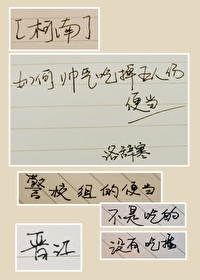 [柯南]
如何帅气吃掉五人份
便当
洛辞寒
警校组的便当
不是吃的
没有吃挂
晋江